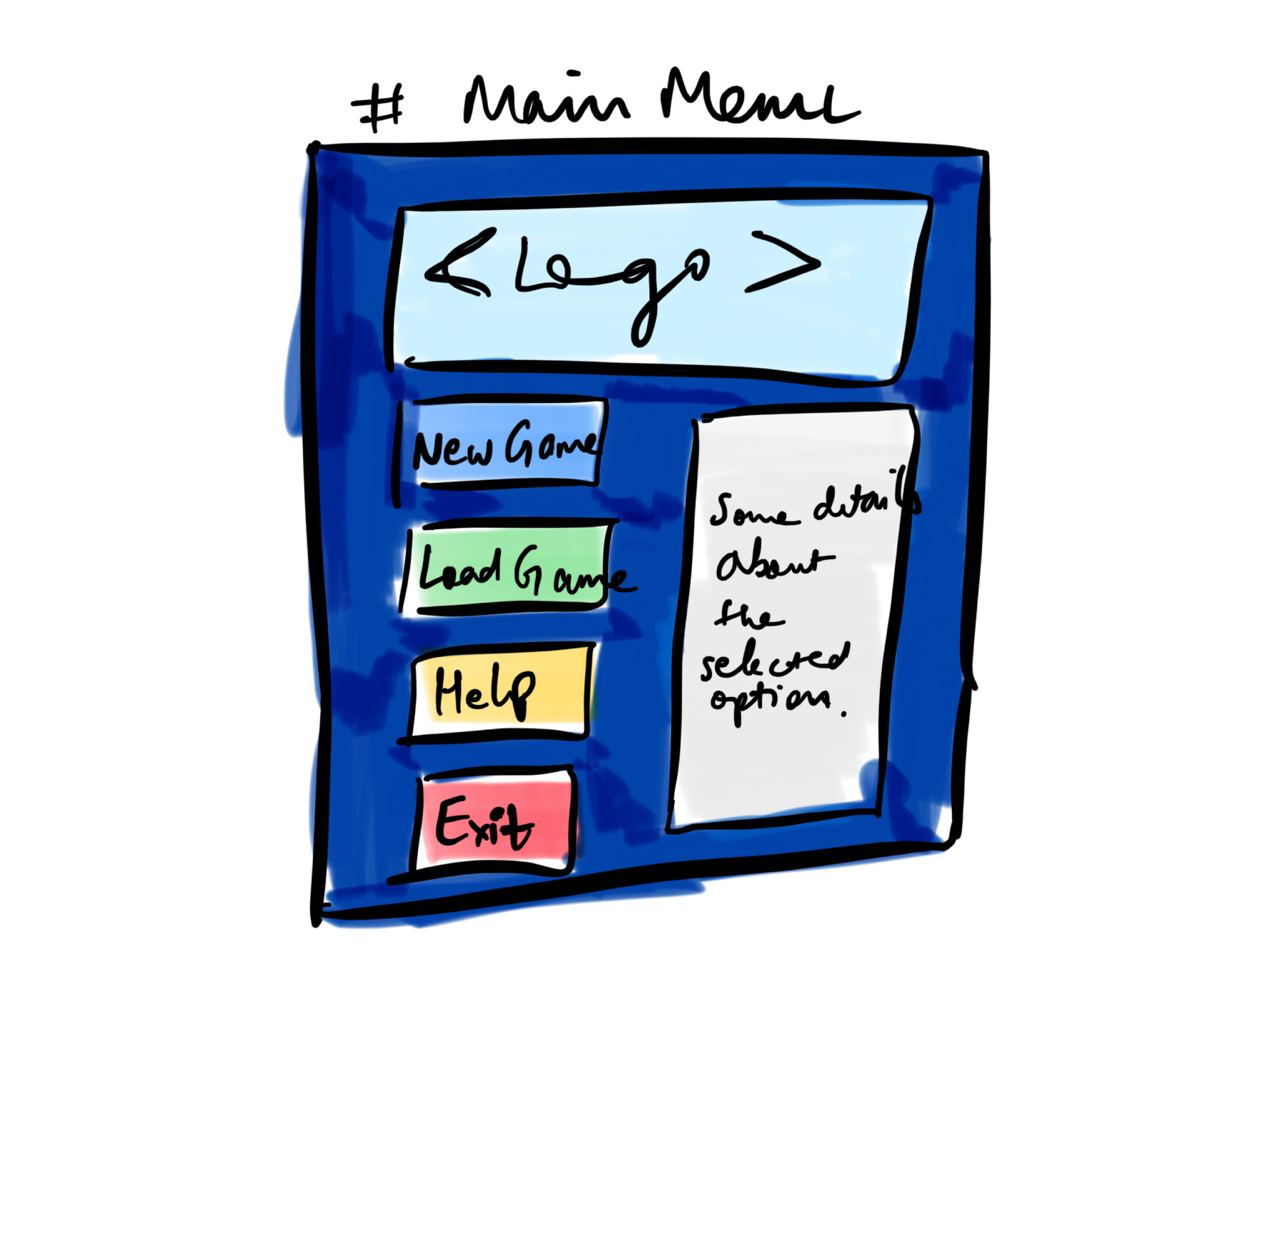 # Main Menu
<Logo>
New Game
Load Game
Help
Exit
Some details
about
the
selected
option.